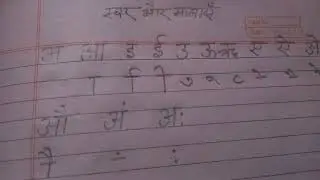 स्वर और मात्राएँ
अ आ इ ई उ ऊ ऋ ए ऐ ओ
ा ि ी ु ू ृ े ै ो
औ अं अः
ौ ं ः